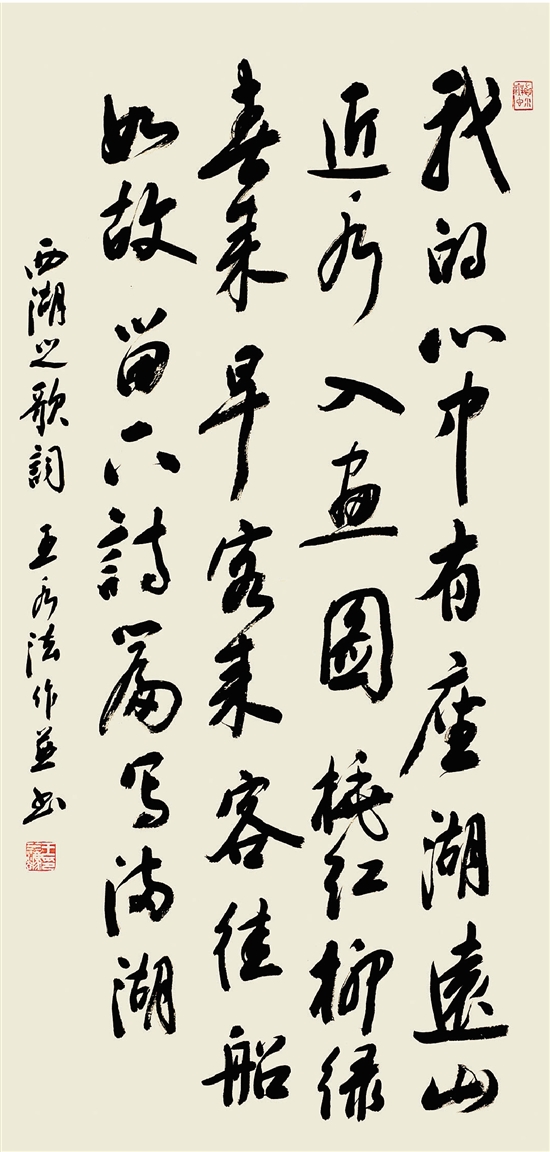 我的心中有座湖遠山
近水入畫圖桃红柳绿
春来早客来客往船
如故留下詩篇写满湖
西湖之歌詞 王水法作並书